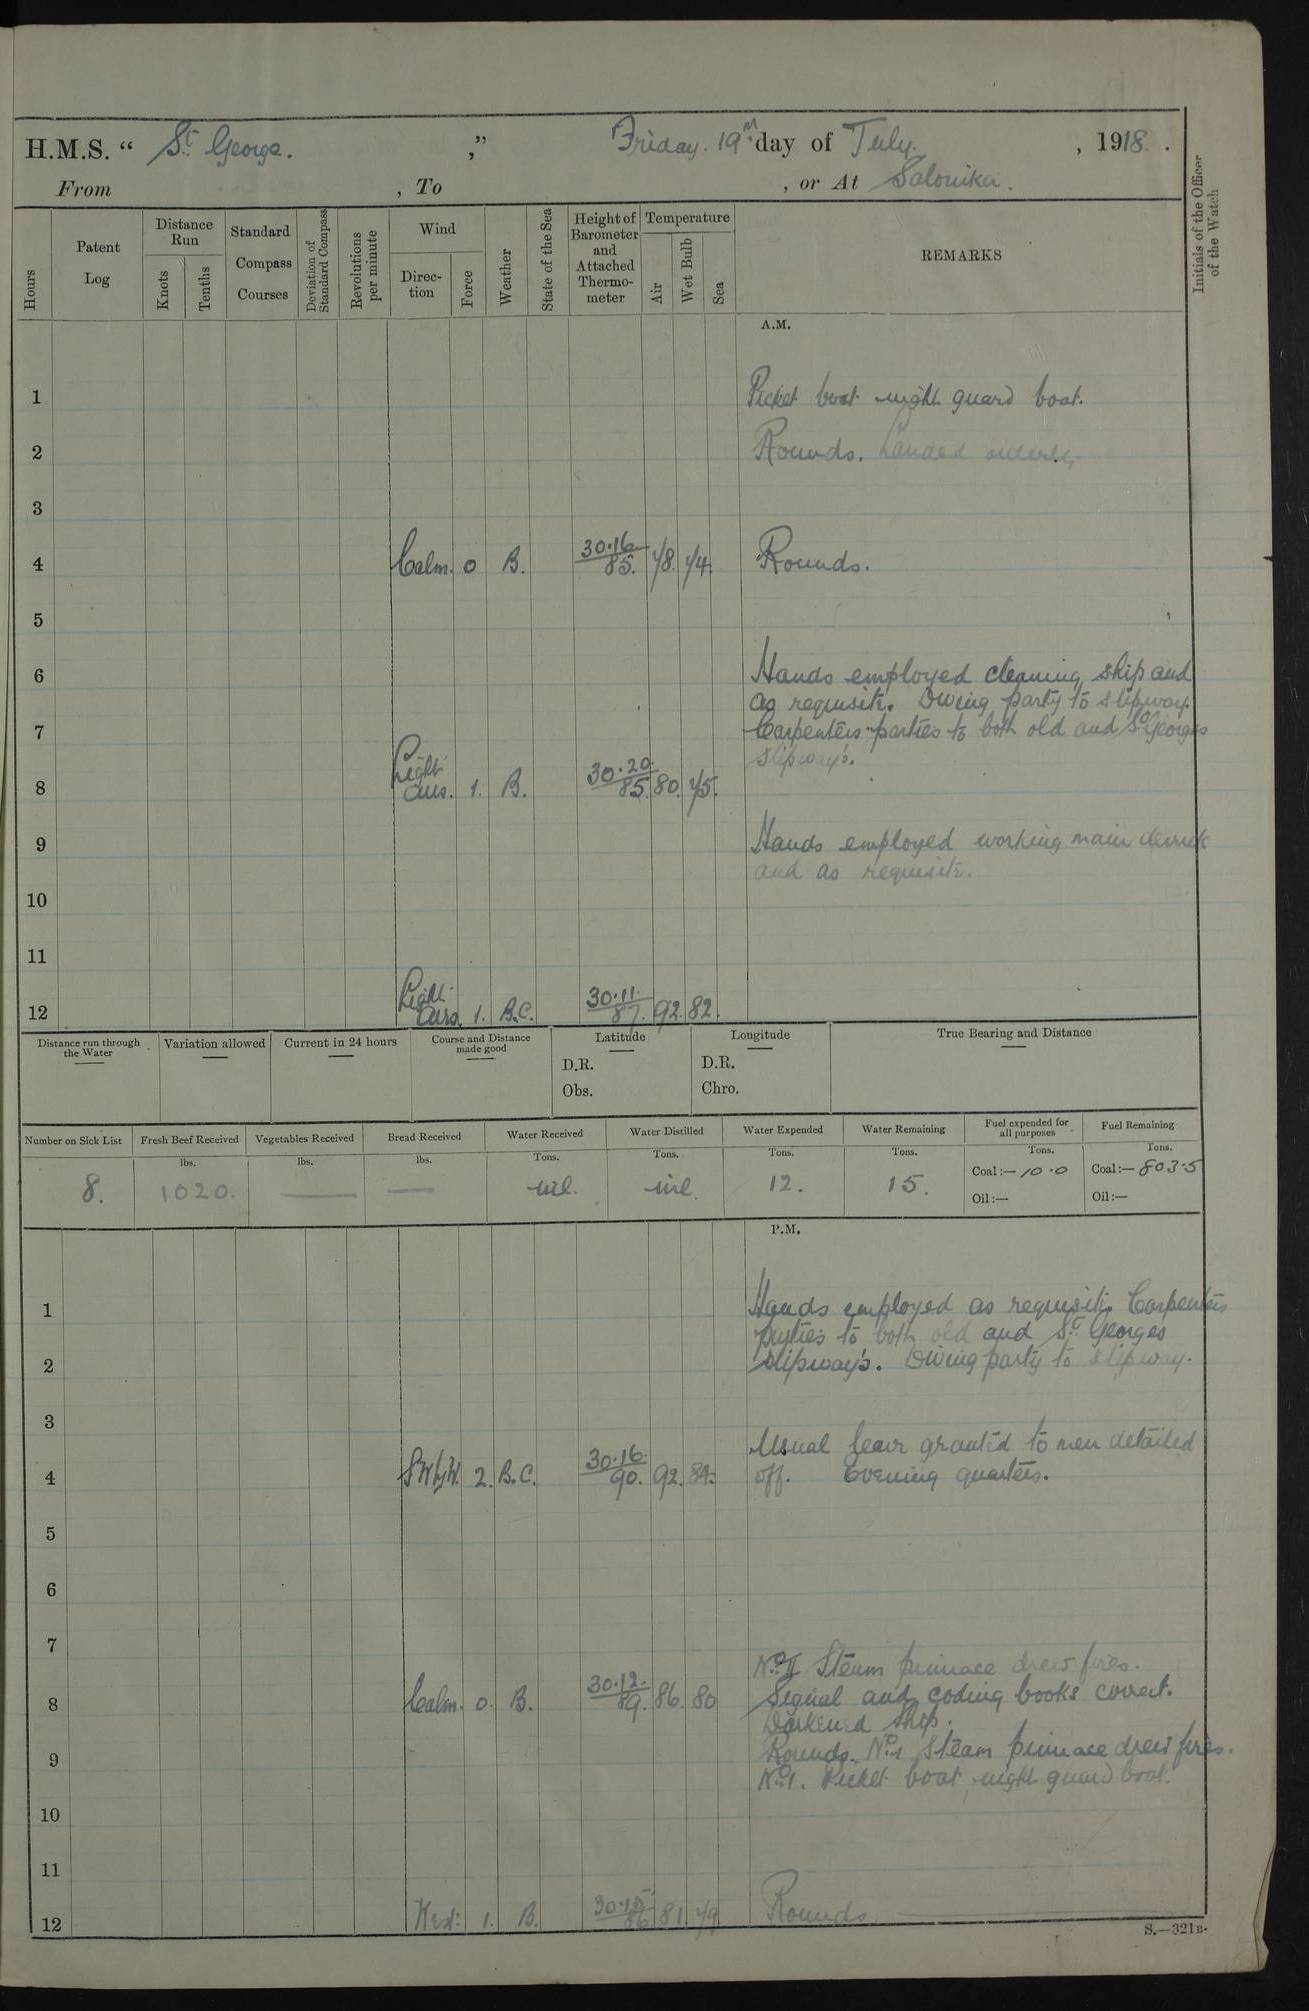 H.M.S. “ St George. ,” Friday. 19th day of July. , 1918 .
From , To , or At Salonika.
Hours
Patent Log
Distance Run
Knots
Tenths
Standard Compass Courses
Deviation of Standard Compass
Revolutions per minute
Wind
Direction
Force
Weather
State of the Sea
Height of Barometer and Attached Thermometer
Temperature
Air
Wet Bulb
Sea
REMARKS
Initials of the Officer of the Watch
A.M.
1 Picket boat night guard boat.
2 Rounds. Landed
3
4 Calm. 0 B. 30.16 85. 78. 74. Rounds.
5
6 Hands employed cleaning ship and
as requisite. Diving party to slipway.
7 Carpenters parties to both old and St Georges
slipway's.
8 Light airs. 1. B. 30.20 85. 80. 75.
9 Hands employed working main derrick
and as requisite.
10
11
12 Light airs. 1. B.C. 30.11. 87. 92. 82.
Distance run through the Water
Variation allowed
Current in 24 hours
Course and Distance made good
Latitude
D.R.
Obs.
Longitude
D.R.
Chro.
True Bearing and Distance
Number on Sick List
8.
Fresh Beef Received
lbs.
1020.
Vegetables Received
lbs.
Bread Received
lbs.
Water Received
Tons.
nil.
Water Distilled
Tons.
nil.
Water Expended
Tons.
12.
Water Remaining
Tons.
15.
Fuel expended for all purposes
Tons.
Coal:— 10.0
Oil:—
Fuel Remaining
Tons.
Coal:— 803.5
Oil:—
P.M.
1 Hands employed as requisite. Carpenters
parties to both old and St. Georges
2 slipway's. Diving party to slipway.
3
Usual leave granted to men detailed
4 SWbyW. 2. B.C. 30.16. 90. 92. 84. off. Evening quarters.
5
6
7
No. II Steam pinnace drew fires.
8 Calm. 0. B. 30.12. 89. 86. 80 Signal and coding books correct.
Darkened ship.
9 Rounds. No. 1 Steam pinnace drew fires.
No. 1. Picket boat night guard boat.
10
11
12 West: 1. B. 30.15 86 81. 79 Rounds.
S.—321B.